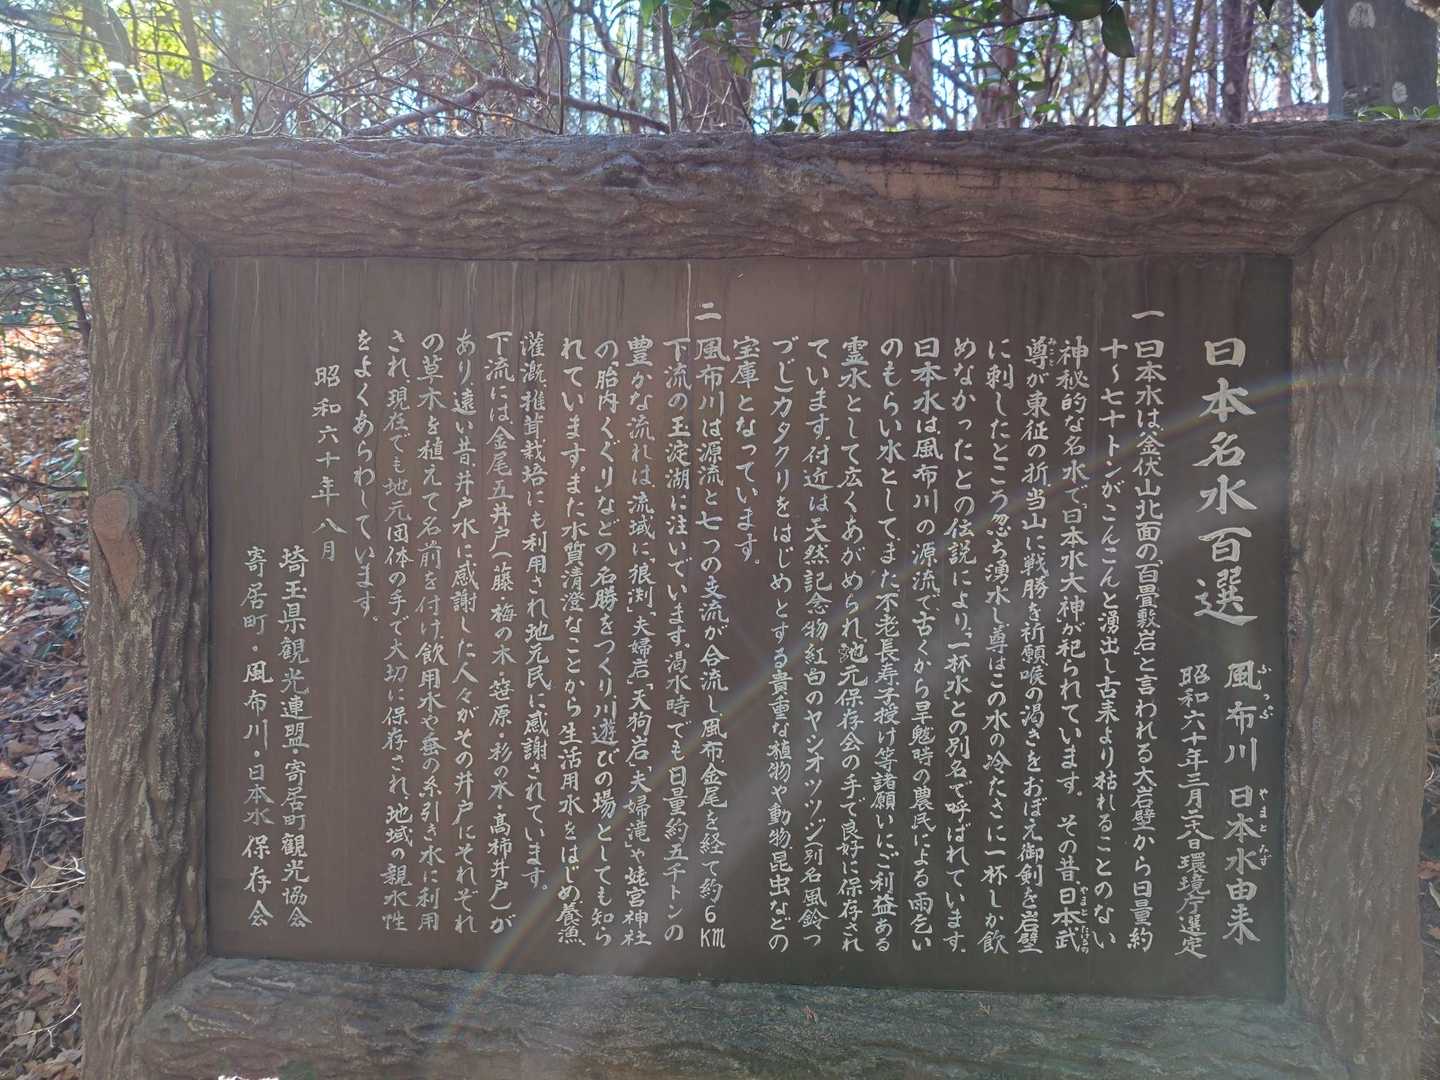 日本名水百選
風布川
ふっぷ
日本水由来
やまとみず
昭和六十年三月二八日環境庁選定
一 日本水は、釜伏山北面の「百畳敷岩」と言われる大岩壁から日量約
十〜七十トンがこんこんと湧出し古来より枯れることのない
神秘的な名水で「日本水大神」が祀られています。その昔日本武
やまとたけるの
尊が東征の折当山に戦勝を祈願喉の渇きをおぼえ御剣を岩壁
みこと
に刺したところ忽ち湧水し尊はこの水の冷たさに一杯しか飲
めなかったとの伝説により、「一杯水」との別名で呼ばれています。
日本水は風布川の源流で古くから旱魃時の農民による雨乞い
のもらい水としてまた不老長寿子授け等諸願いにご利益ある
霊水として広くあがめられ、地元保存会の手で良好に保存され
ています。付近は天然記念物紅白のヤシオツツジ(別名風鈴つ
づじ)カタクリをはじめとする貴重な植物や動物、昆虫などの
宝庫となっています。
二 風布川は源流と七つの支流が合流し風布金尾を経て約6km
下流の玉淀湖に注いでいます。渇水時でも日量約五千トンの
豊かな流れは流域に、「狼渕」、「夫婦岩」「天狗岩」「夫婦滝」や姥宮神社
の「胎内くぐり」などの名勝をつくり、川遊びの場としても知ら
れています。また水質清澄なことから生活用水をはじめ、養漁、
灌漑、椎茸栽培にも利用され地元民に感謝されています。
下流には金尾五井戸(藤・梅の木・笹原・杉の木・高柿井戸)が
あり、遠い昔、井戸水に感謝した人々がその井戸にそれぞれ
の草木を植えて名前を付け、飲用水や蚕の糸引き水に利用
され、現在でも地元団体の手で大切に保存され、地域の親水性
をよくあらわしています。
昭和六十年八月
埼玉県観光連盟・寄居町観光協会
寄居町・風布川・日本水保存会